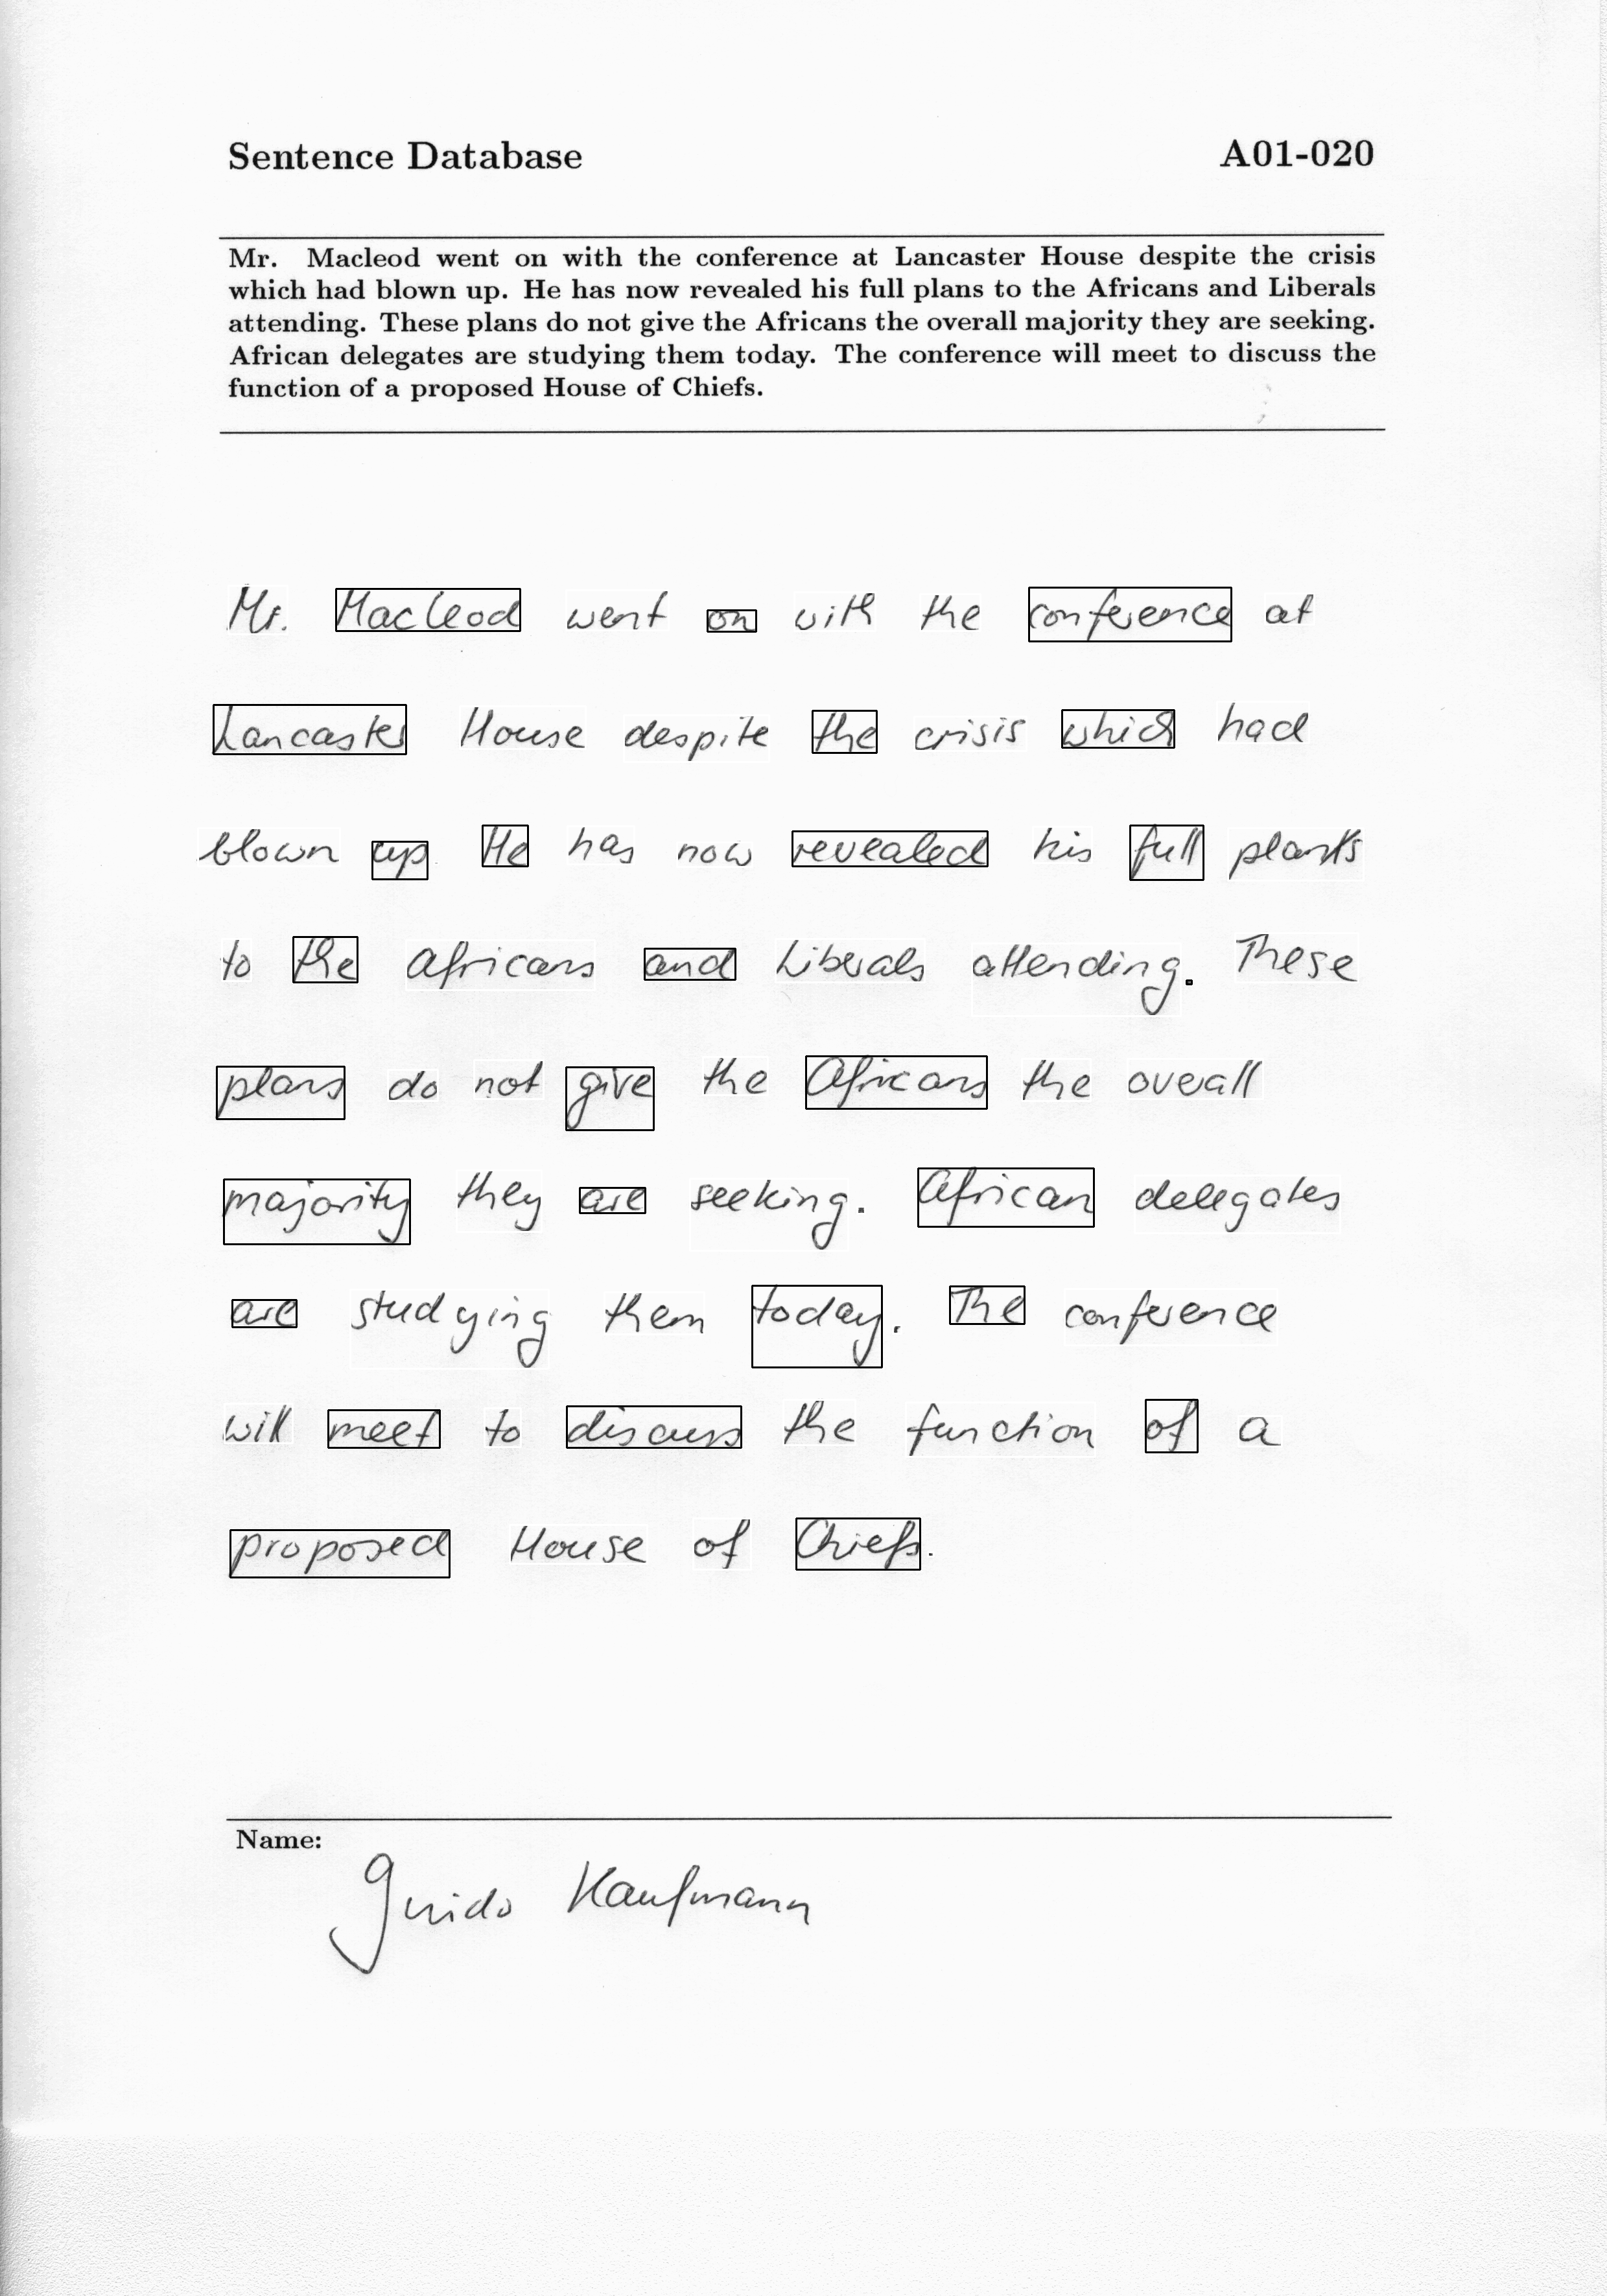 Sentence Database A01-020
Mr. Macleod went on with the conference at Lancaster House despite the crisis
which had blown up. He has now revealed his full plans to the Africans and Liberals
attending. These plans do not give the Africans the overall majority they are seeking.
African delegates are studying them today. The conference will meet to discuss the
function of a proposed House of Chiefs.
Mr. Macleod went on with the conference at
Lancaster House despite the crisis which had
blown up. He has now revealed his full plants
to the Africans and Liberals attending. These
plans do not give the Africans the overall
majority they are seeking. African delegates
are studying them today. The conference
will meet to discuss the function of a
proposed House of Chiefs.
Name:
Guido Kaufmann